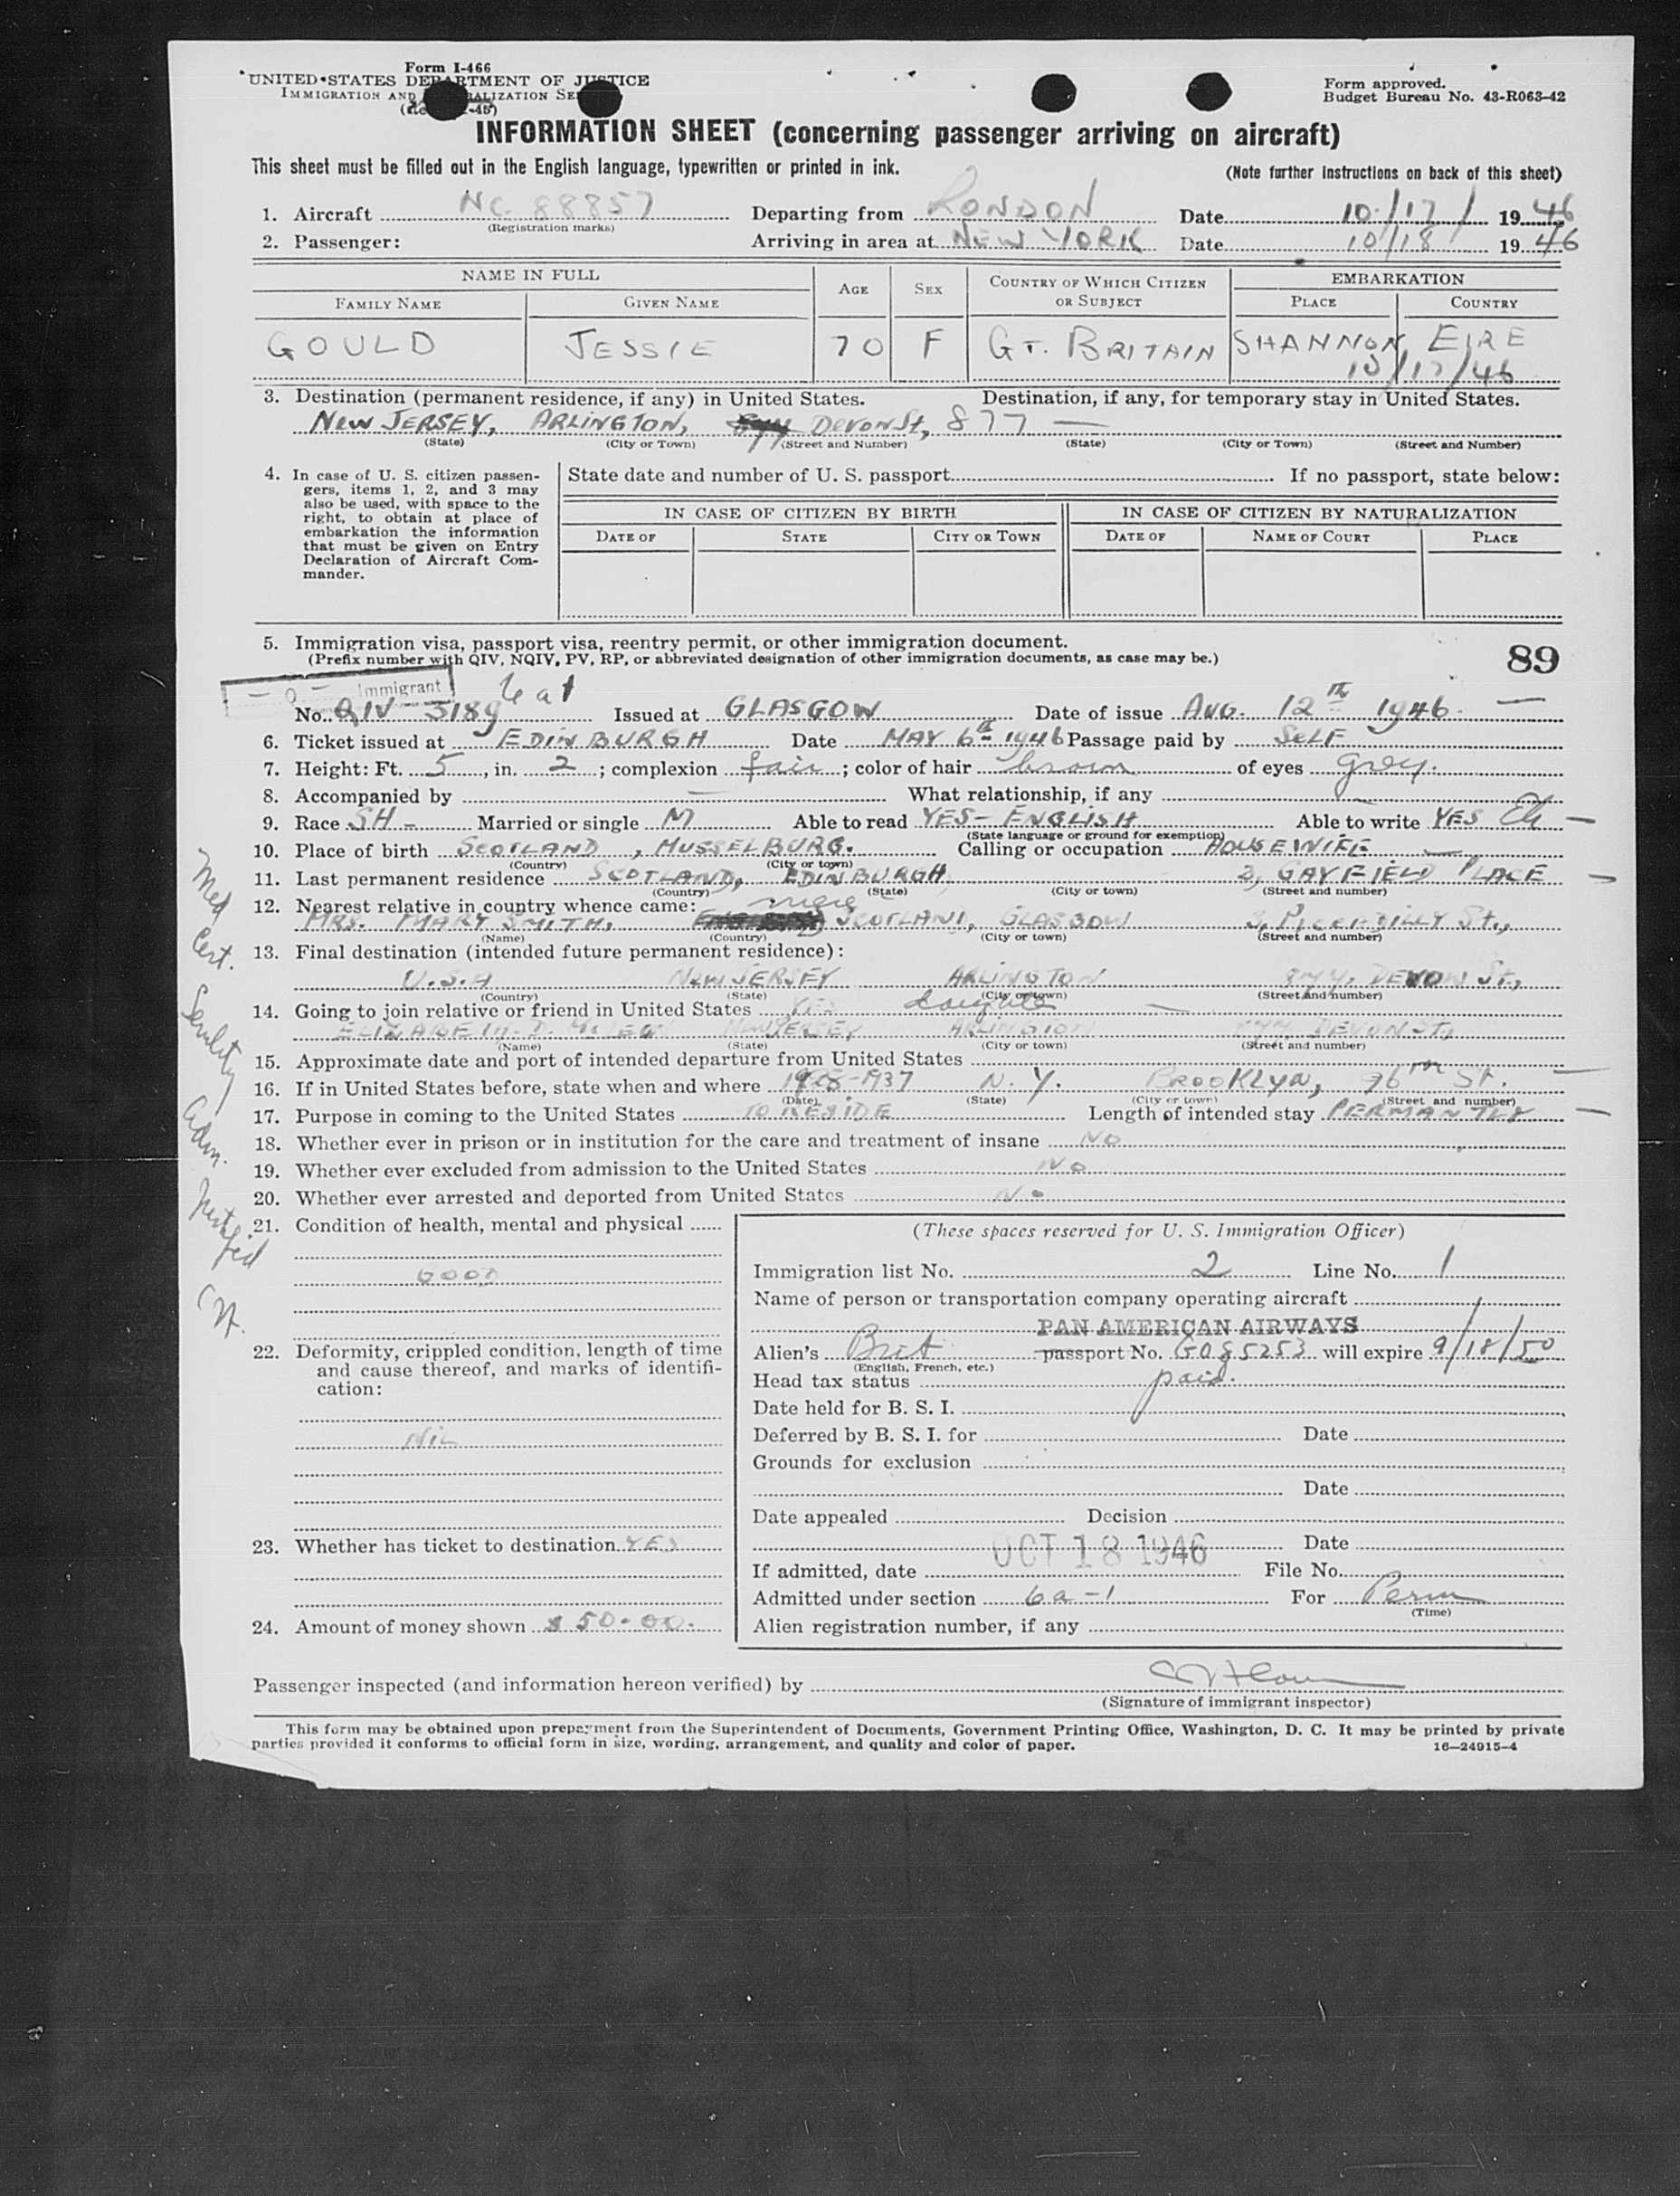 Form I-466
UNITED STATES DEPARTMENT OF JUSTICE
IMMIGRATION AND NATURALIZATION SE
-45)
Form approved.
Budget Bureau No. 43-R063-42
INFORMATION SHEET (concerning passenger arriving on aircraft)
This sheet must be filled out in the English language, typewritten or printed in ink.
(Note further instructions on back of this sheet)
1. Aircraft NC 88857 Departing from LONDON Date 10/17/ 1946
(Registration marks)
2. Passenger: Arriving in area at NEW YORK Date 10/18 1946
NAME IN FULL AGE SEX COUNTRY OF WHICH CITIZEN OR SUBJECT EMBARKATION
FAMILY NAME GIVEN NAME PLACE COUNTRY
GOULD JESSIE 70 F GT. BRITAIN SHANNON EIRE
10/17/46
3. Destination (permanent residence, if any) in United States. Destination, if any, for temporary stay in United States.
NEW JERSEY, ARLINGTON, DEVON St, 877 —
(State) (City or Town) (Street and Number) (State) (City or Town) (Street and Number)
4. In case of U. S. citizen passen-
gers, items 1, 2, and 3 may
also be used, with space to the
right, to obtain at place of
embarkation the information
that must be given on Entry
Declaration of Aircraft Com-
mander.
State date and number of U. S. passport If no passport, state below:
IN CASE OF CITIZEN BY BIRTH IN CASE OF CITIZEN BY NATURALIZATION
DATE OF STATE CITY OR TOWN DATE OF NAME OF COURT PLACE
5. Immigration visa, passport visa, reentry permit, or other immigration document.
(Prefix number with QIV, NQIV, PV, RP, or abbreviated designation of other immigration documents, as case may be.)
89
- 0 - Immigrant
No. QIV - 3189 Issued at GLASGOW Date of issue AUG. 12th 1946 —
6. Ticket issued at EDINBURGH Date MAY 6th 1946 Passage paid by SELF
7. Height: Ft. 5, in. 2; complexion fair; color of hair brown of eyes grey.
8. Accompanied by — What relationship, if any —
9. Race SH - Married or single M Able to read YES - ENGLISH Able to write YES
(State language or ground for exemption)
10. Place of birth SCOTLAND, MUSSELBURG. Calling or occupation HOUSEWIFE —
(Country) (City or town)
11. Last permanent residence SCOTLAND, EDINBURGH 2, GAYFIELD PLACE —
(Country) (State) (City or town) (Street and number)
12. Nearest relative in country whence came: niece
MRS. MARY SMITH, SCOTLAND, GLASGOW 3, PICCADILLY St.,
(Name) (Country) (City or town) (Street and number)
13. Final destination (intended future permanent residence):
U.S.A NEW JERSEY ARLINGTON 877, DEVON St.,
(Country) (State) (City or town) (Street and number)
14. Going to join relative or friend in United States YES —
NEW JERSEY ARLINGTON 877 DEVON ST,
(Name) (State) (City or town) (Street and number)
15. Approximate date and port of intended departure from United States
16. If in United States before, state when and where 1928-1937 N. Y. BROOKLYN, 76th St. —
(Date) (State) (City or town) (Street and number)
17. Purpose in coming to the United States TO RESIDE Length of intended stay —
18. Whether ever in prison or in institution for the care and treatment of insane NO
19. Whether ever excluded from admission to the United States NO
20. Whether ever arrested and deported from United States NO
Med
Cert.
Senility
adm.
CH.
21. Condition of health, mental and physical
GOOD
22. Deformity, crippled condition, length of time
and cause thereof, and marks of identifi-
cation:
NIL
23. Whether has ticket to destination YES
24. Amount of money shown $ 50-00.
(These spaces reserved for U. S. Immigration Officer)
Immigration list No. 2 Line No. 1
Name of person or transportation company operating aircraft
PAN AMERICAN AIRWAYS
Alien's Brit passport No. G085253 will expire 9/18/50
(English, French, etc.)
Head tax status paid.
Date held for B. S. I.
Deferred by B. S. I. for Date
Grounds for exclusion
Date
Date appealed Decision
Date
OCT 18 1946
If admitted, date File No.
Admitted under section 6a-1 For Perm
(Time)
Alien registration number, if any
Passenger inspected (and information hereon verified) by
(Signature of immigrant inspector)
This form may be obtained upon prepayment from the Superintendent of Documents, Government Printing Office, Washington, D. C. It may be printed by private
parties provided it conforms to official form in size, wording, arrangement, and quality and color of paper.
16—24915-4